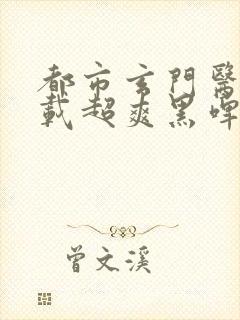 都市玄門醫
載超爽黑啤
曾文溪